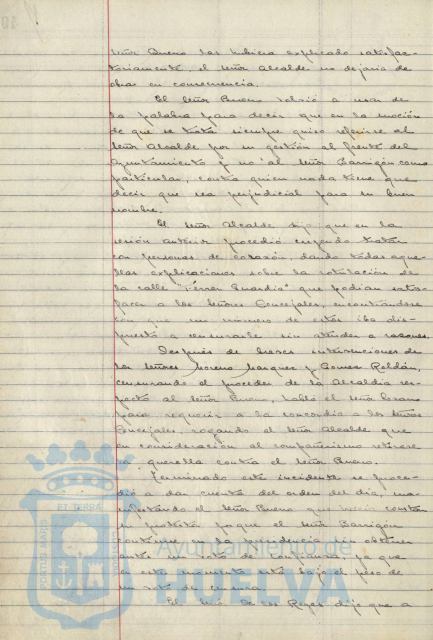 señor Bueno las hubiera explicado satisfac-
toriamente, el señor Alcalde no dejaria de
obrar en consecuencia.
El señor Bueno volvió a usar de
la palabra para decir que en la moción
de que se trata siempre quiso referirse al
señor Alcalde por su gestión al frente del
Ayuntamiento y no al señor Barrigón como
particular, contra quien nada tiene que
decir que sea perjudicial para su buen
nombre.
El señor Alcalde dijo que en la
sesión anterior procedió creyendo tratar
con personas de corazón, dando todas aque-
llas explicaciones sobre la rotulación de
la calle "Ferrer Guardia" que podian satis-
facer a los señores Concejales, encontrándose
con que un número de estos iba dis-
puesto a censurarle sin atender a razones.
Después de breves intervenciones de
los señores Moreno Marquez y Gomez Roldán,
censurando el proceder de la Alcaldia res-
pecto al señor Bueno, habló el señor
para requerir a la concordia a los señores
Concejales, rogando al señor Alcalde que
en consideración al compañerismo retirase
la querella contra el señor Bueno.
Terminado este incidente se proce-
dió a dar cuenta del orden del dia, ma-
nifestando el señor Bueno que hacía constar
su protesta porque el señor Barrigón
continue en la presidencia sin obtener
antes un voto de confianza, ya que
en este momento está bajo el peso de
un voto de censura.
El señor de los Reyes dijo que a
PORTUS MARIS
ET TERRÆ
Ayuntamiento de
HUELVA